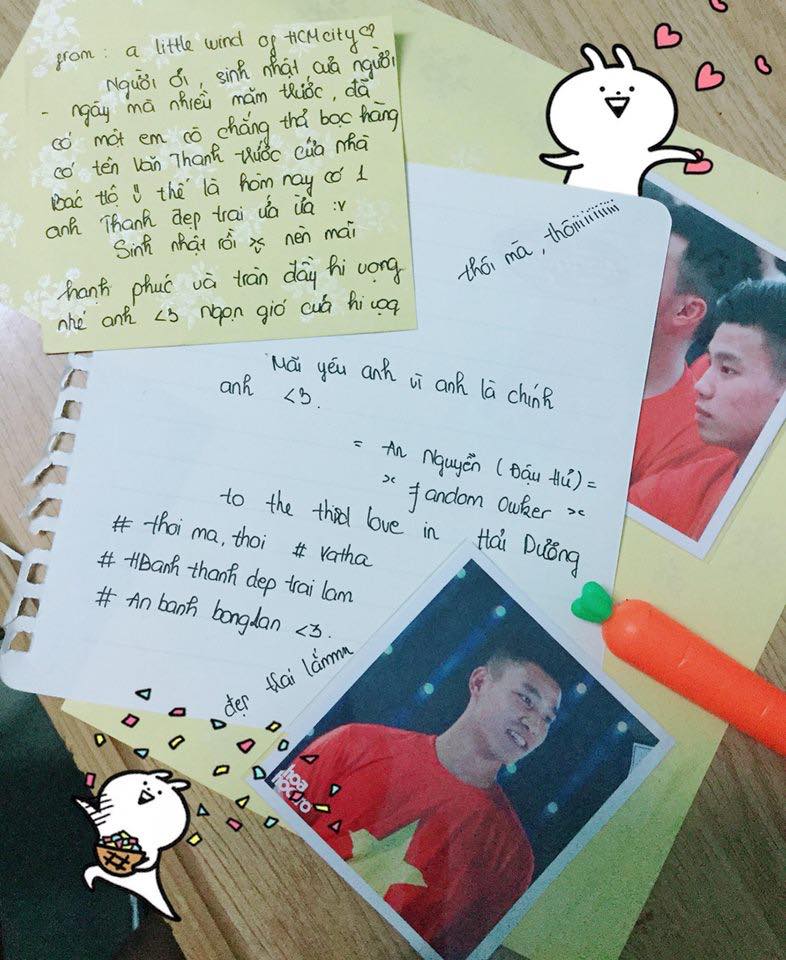 from : a little wind of HCM city ♡
Người ơi, sinh nhật của người
- ngày mà nhiều năm trước, đã
có một em cô chẳng thả bọc hàng
có tên Văn Thanh trước cửa nhà
Bác Hộ thế là hôm nay có 1
anh Thanh đẹp trai ưa ưa :v
Sinh nhật rồi nên mãi
hạnh phúc và tràn đầy hi vọng
nhé anh <3 ngọn gió của hi vọg
thôi mà, thôiiiiiiiiiiii
Mãi yêu anh vì anh là chính
anh <3.
= An Nguyễn (Đậu Hủ) =
fandom owker
to the third love in Hải Dương
# thoi ma, thoi # vatha
# HBanh thanh dep trai lam
# An banh bongdan <3.
đẹp trai lắmmm
hoa
học
trò